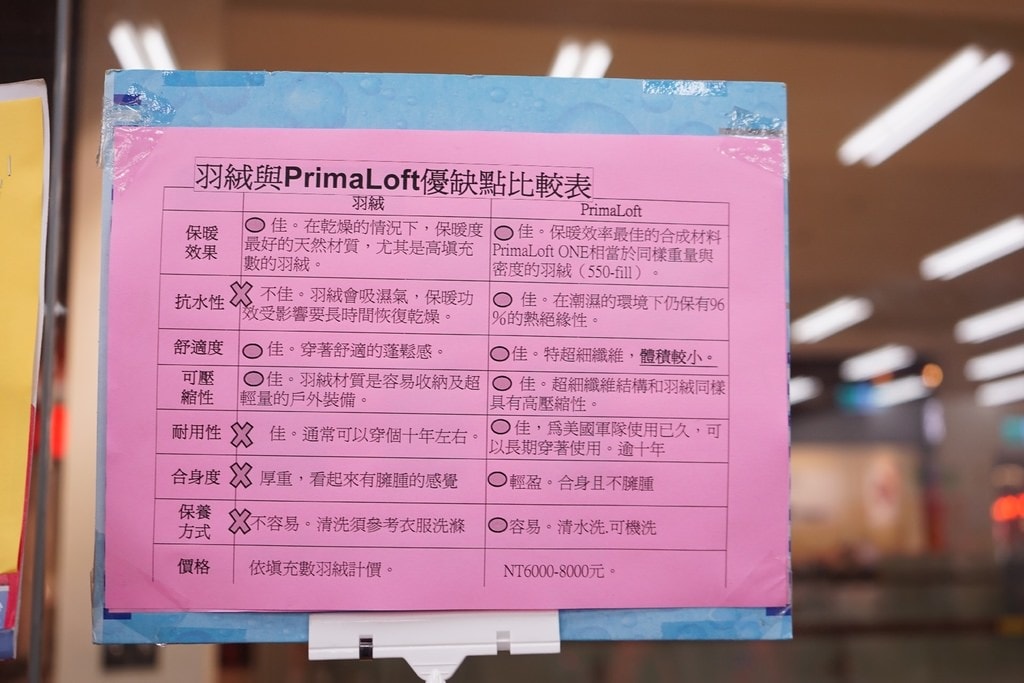 羽絨與PrimaLoft優缺點比較表
羽絨
PrimaLoft
保暖
效果
佳。在乾燥的情況下，保暖度
最好的天然材質，尤其是高填充
數的羽絨。
佳。保暖效率最佳的合成材料
PrimaLoft ONE相當於同樣重量與
密度的羽絨（550-fill）。
抗水性
不佳。羽絨會吸濕氣，保暖功
效受影響要長時間恢復乾燥。
佳。在潮濕的環境下仍保有96
%的熱絕緣性。
舒適度
佳。穿著舒適的蓬鬆感。
佳。特超細纖維，體積較小。
可壓
縮性
佳。羽絨材質是容易收納及超
輕量的戶外裝備。
佳。超細纖維結構和羽絨同樣
具有高壓縮性。
耐用性
佳。通常可以穿個十年左右。
佳，為美國軍隊使用已久，可
以長期穿著使用。逾十年
合身度
厚重，看起來有臃腫的感覺
輕盈。合身且不臃腫
保養
方式
不容易。清洗須參考衣服洗滌
容易。清水洗.可機洗
價格
依填充數羽絨計價。
NT6000-8000元。